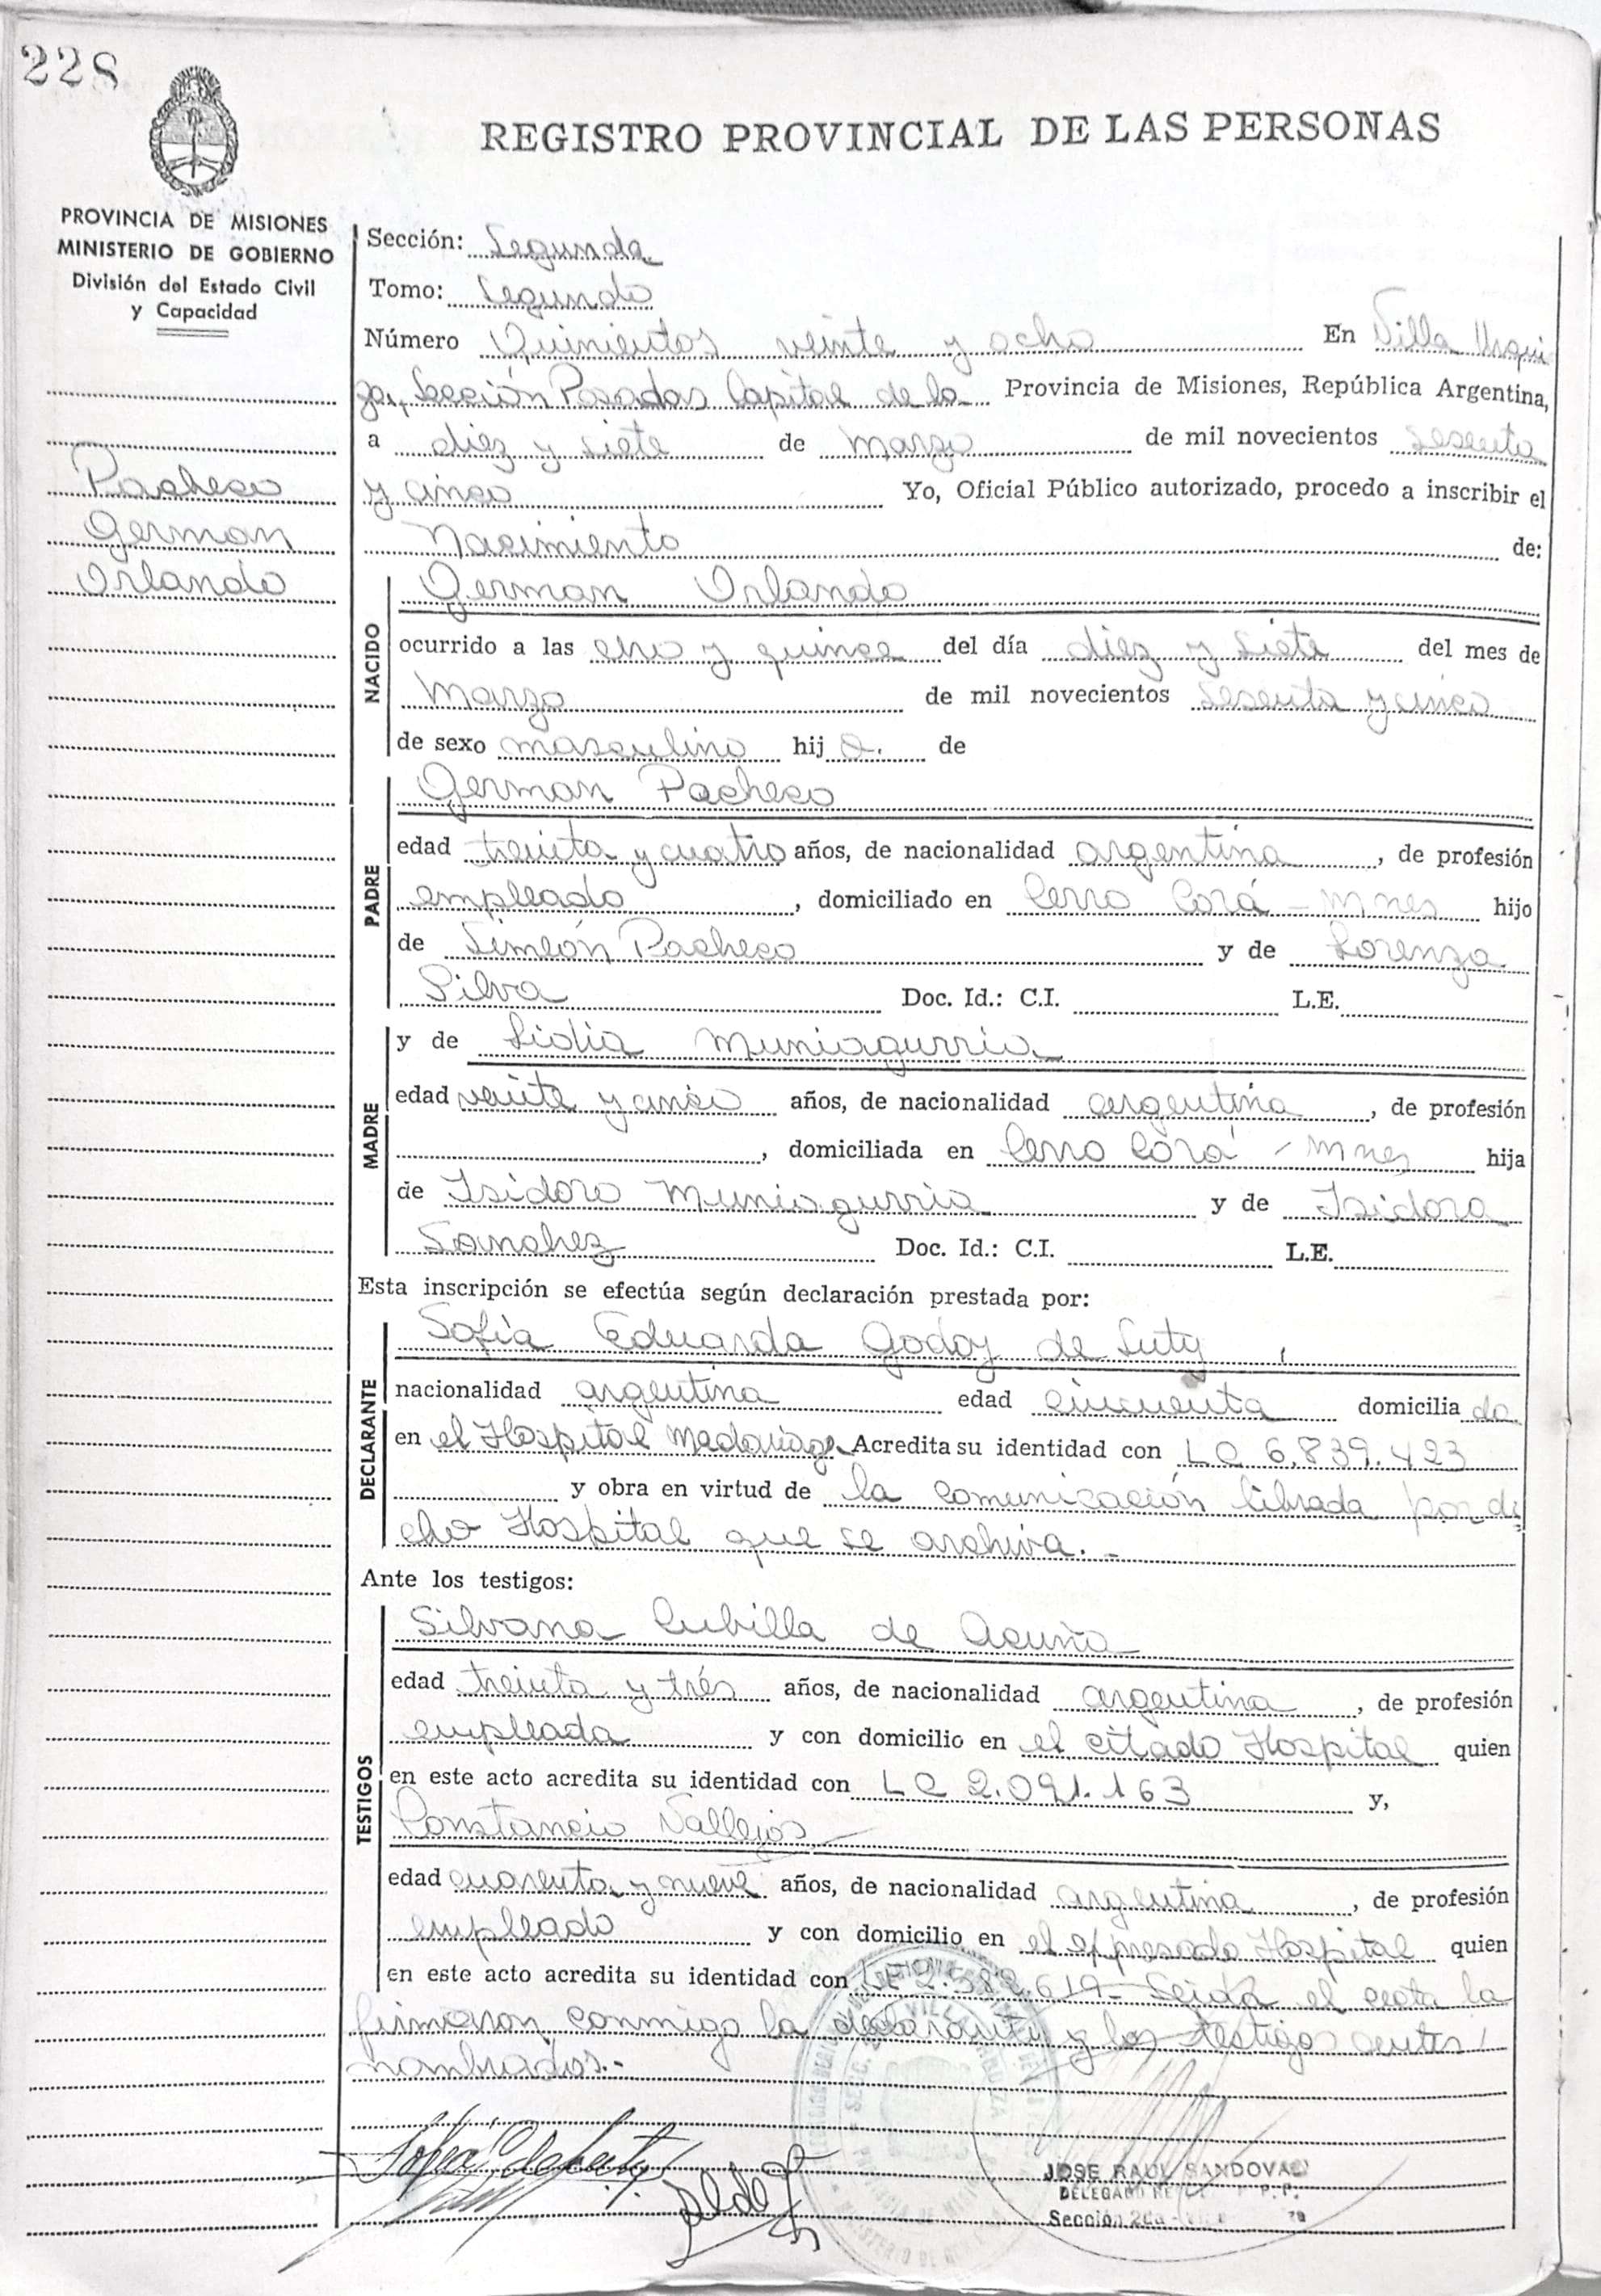 228
REGISTRO PROVINCIAL DE LAS PERSONAS
PROVINCIA DE MISIONES
MINISTERIO DE GOBIERNO
División del Estado Civil
y Capacidad
Pacheco
German
Orlando
Sección: Segunda
Tomo: Segundo
Número Quinientos veinte y ocho En Villa Urqui
za, Sección Posadas Capital de la Provincia de Misiones, República Argentina,
a diez y siete de marzo de mil novecientos sesenta
y cinco Yo, Oficial Público autorizado, procedo a inscribir el
Nacimiento de:
NACIDO
German Orlando
ocurrido a las y quince del día diez y siete del mes de
Marzo de mil novecientos sesenta y cinco
de sexo masculino hij o. de
PADRE
German Pacheco
edad treinta y cuatro años, de nacionalidad argentina, de profesión
empleado, domiciliado en Cerro Corá - Mnes hijo
de Simeón Pacheco y de Lorenza
Silva Doc. Id.: C.I. L.E.
MADRE
y de Lidia Muniagurria
edad veinte y cinco años, de nacionalidad argentina, de profesión
, domiciliada en Cerro Corá - Mnes hija
de Isidoro Muniagurria y de Isidora
Sanchez Doc. Id.: C.I. L.E.
Esta inscripción se efectúa según declaración prestada por:
DECLARANTE
Sofía Eduarda Godoy de Luty,
nacionalidad argentina edad cincuenta domicilia da
en el Hospital Madariaga Acredita su identidad con LC 6.839.423
y obra en virtud de la comunicación librada por di
cho Hospital que se archiva.-
Ante los testigos:
TESTIGOS
Silvana Cubilla de Acuña
edad treinta y trés años, de nacionalidad argentina, de profesión
empleada y con domicilio en el citado Hospital quien
en este acto acredita su identidad con LC 2.091.163 y,
Constancio Vallejos
edad cuarenta y nueve años, de nacionalidad argentina, de profesión
empleado y con domicilio en el expresado Hospital quien
en este acto acredita su identidad con LE 2.582.619- Leida el acta la
firmaron conmigo la declarante y los testigos antes
nombrados.-
JOSE RAUL SANDOVAL
DELEGADO
Sección 2da -